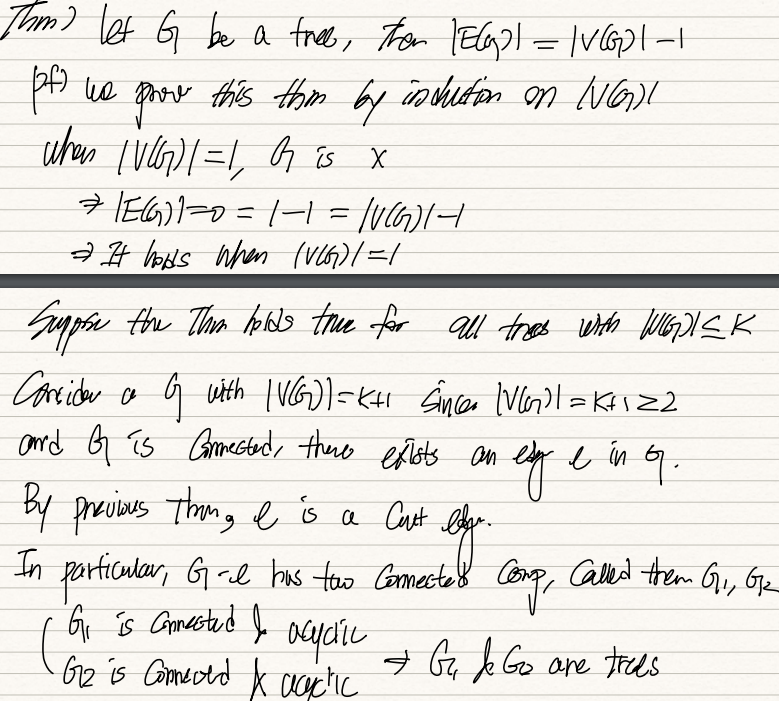 Thm) let G be a tree, then |E(G)| = |V(G)| -1
pf) we prove this thm by induction on |V(G)|
when |V(G)|=1, G is x
⇒ |E(G)|=0 = 1-1 = |V(G)|-1
⇒ It holds when |V(G)|=1
Suppose the Thm holds true for all trees with |V(G)|≤K
Consider a G with |V(G)|=K+1 Since |V(G)|=K+1≥2
and G is Connected, there exists an edge e in G.
By previous Thm, e is a Cut edge.
In particular, G-e has two Connected Comp, Called them G1, G2
( G1 is Connected & acyclic
G2 is Connected & acyclic ⇒ G1 & G2 are trees